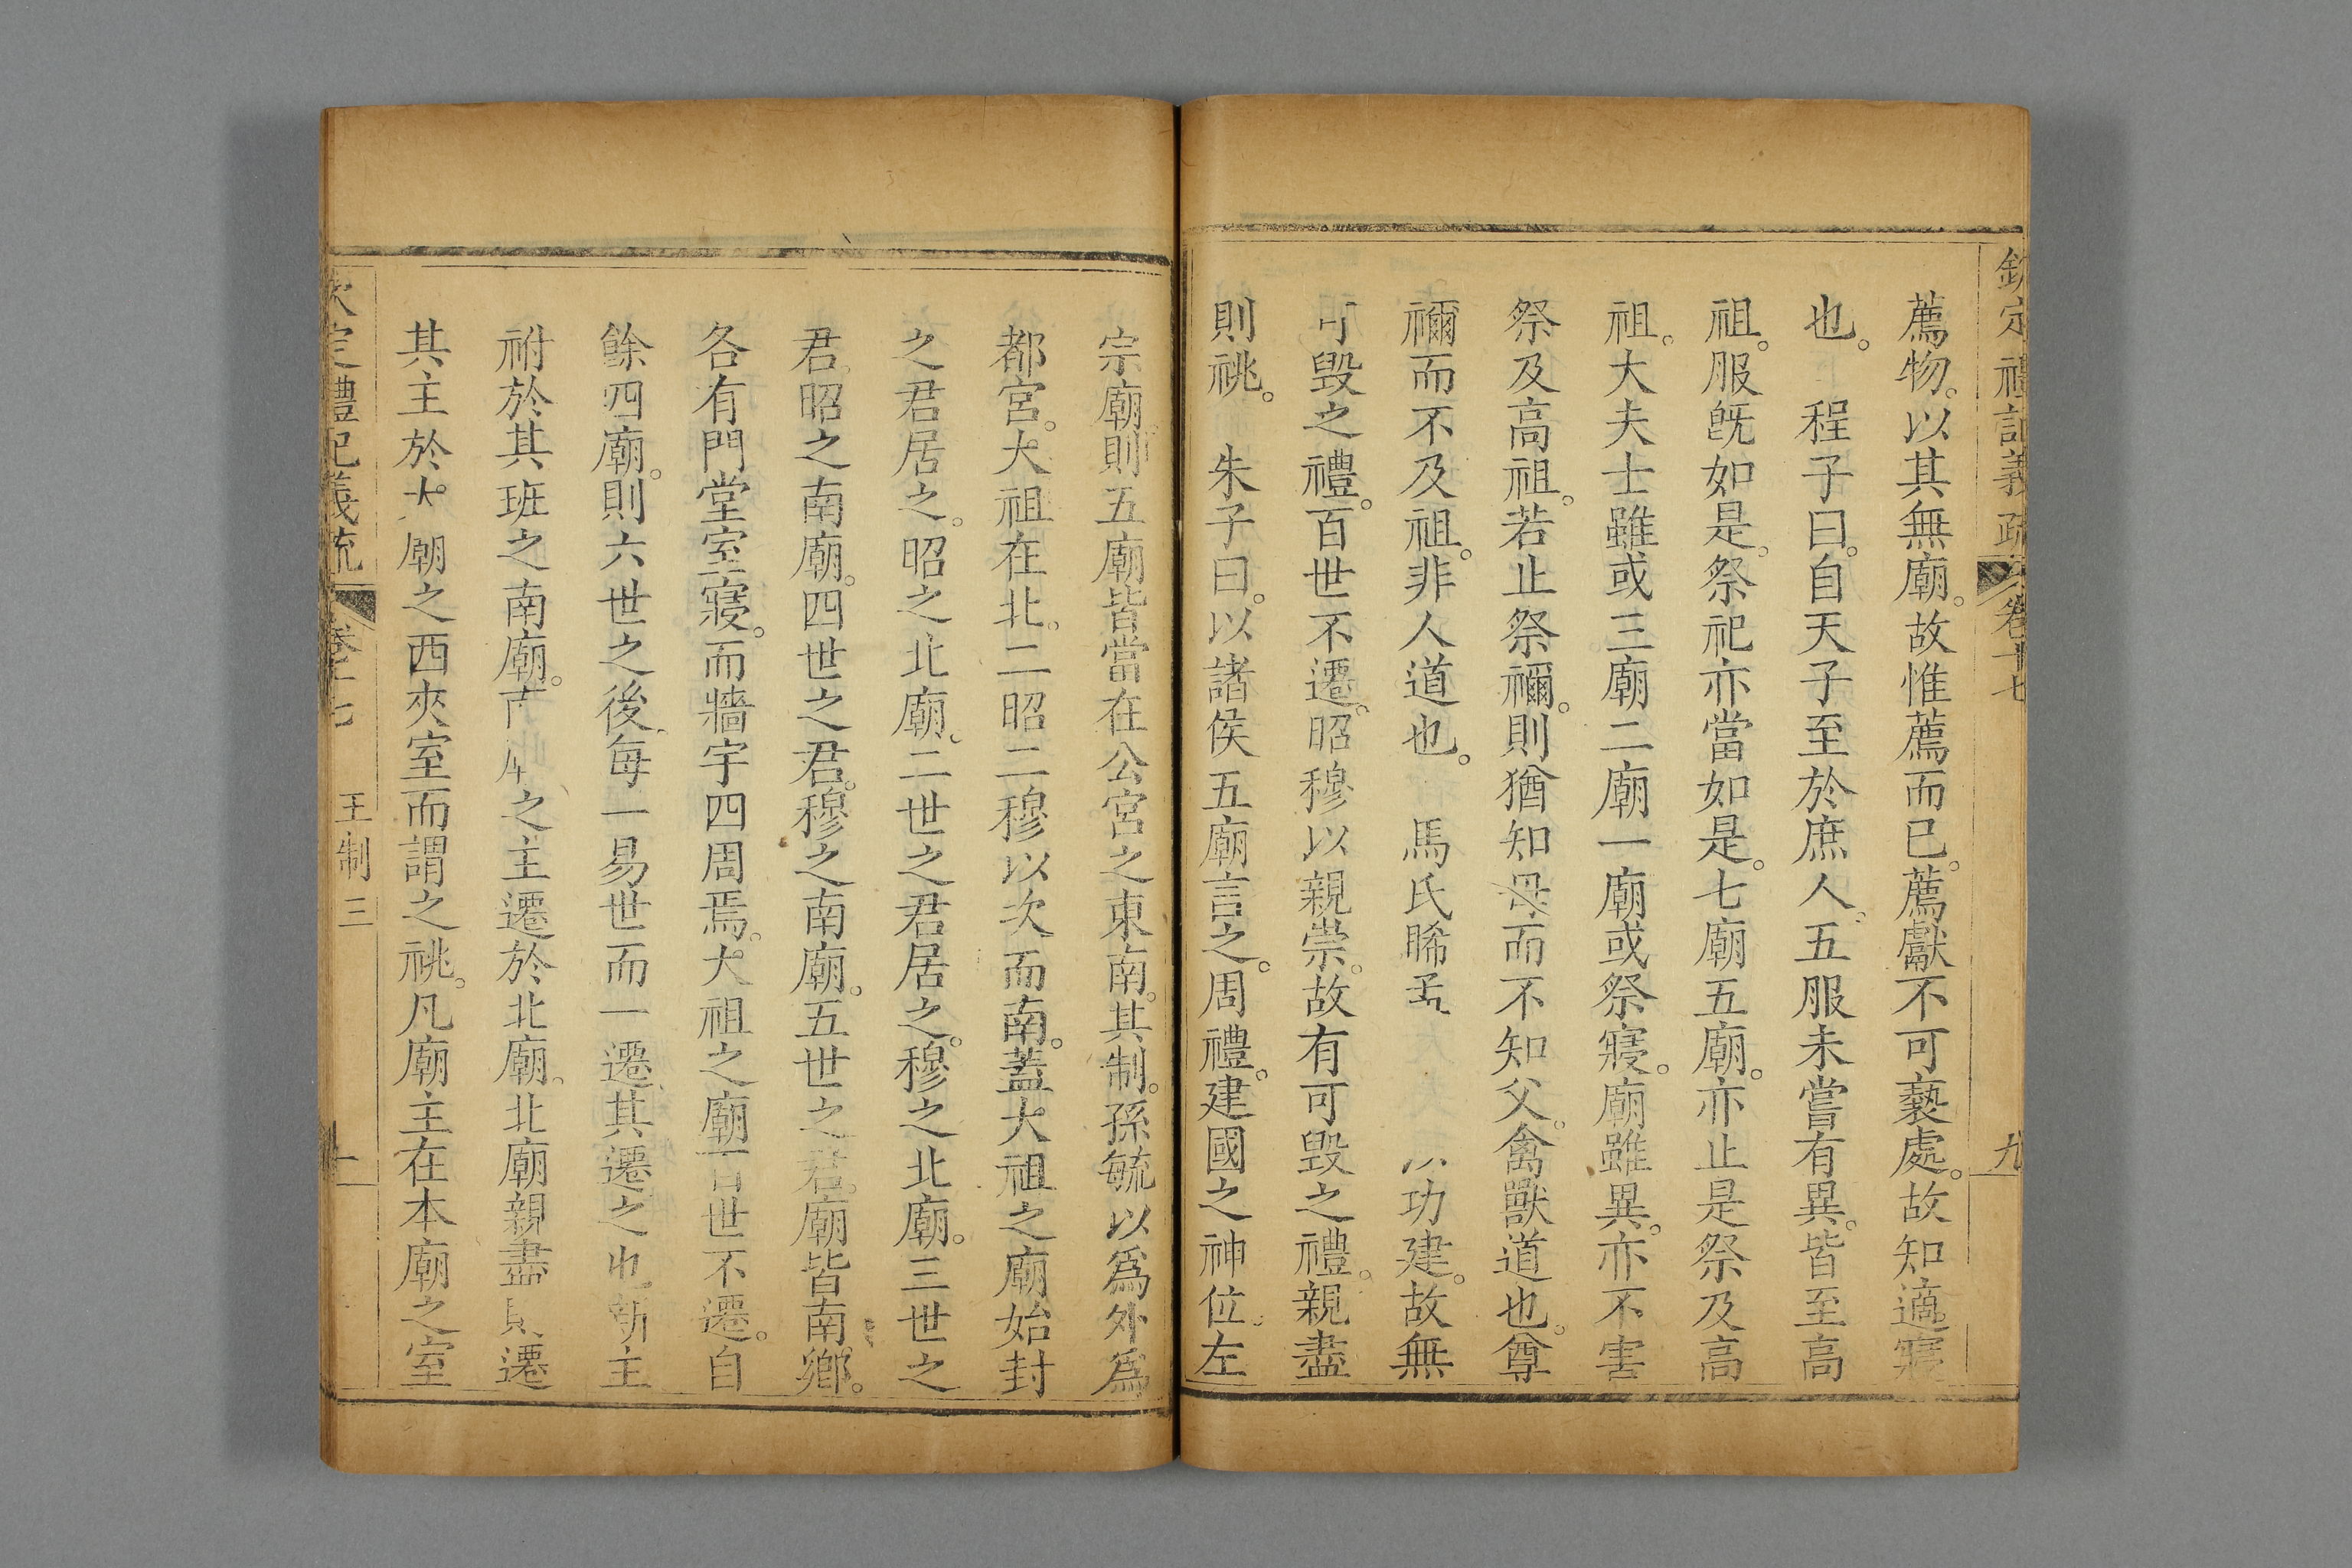 欽定禮記義疏 卷十七 九
薦物。以其無廟。故惟薦而已。薦獻不可褻處。故知適寢
也。 程子曰。自天子至於庶人。五服未嘗有異。皆至高
祖。服旣如是。祭祀亦當如是。七廟五廟。亦止是祭及高
祖。大夫士雖或三廟二廟一廟或祭寢。廟雖異。亦不害
祭及高祖。若止祭禰。則猶知母而不知父。禽獸道也。尊
禰而不及祖。非人道也。 馬氏睎孟 功建。故無
可毀之禮。百世不遷。昭穆以親崇。故有可毀之禮。親盡
則祧。 朱子曰。以諸侯五廟言之。周禮。建國之神位。左
宗廟。則五廟皆當在公宮之東南。其制。孫毓以爲外爲
都宮。大祖在北。二昭二穆以次而南。蓋大祖之廟始封
之君居之。昭之北廟。二世之君居之。穆之北廟。三世之
君。昭之南廟。四世之君。穆之南廟。五世之君。廟皆南鄉。
各有門堂室寢。而牆宇四周焉。大祖之廟百世不遷。自
餘四廟。則六世之後。每一易世而一遷。其遷之也。新主
祔於其班之南廟。南 之主遷於北廟。北廟親盡 遷
其主於大廟之西夾室而謂之祧。凡廟主在本廟之室
欽定禮記義疏 卷十七 王制三